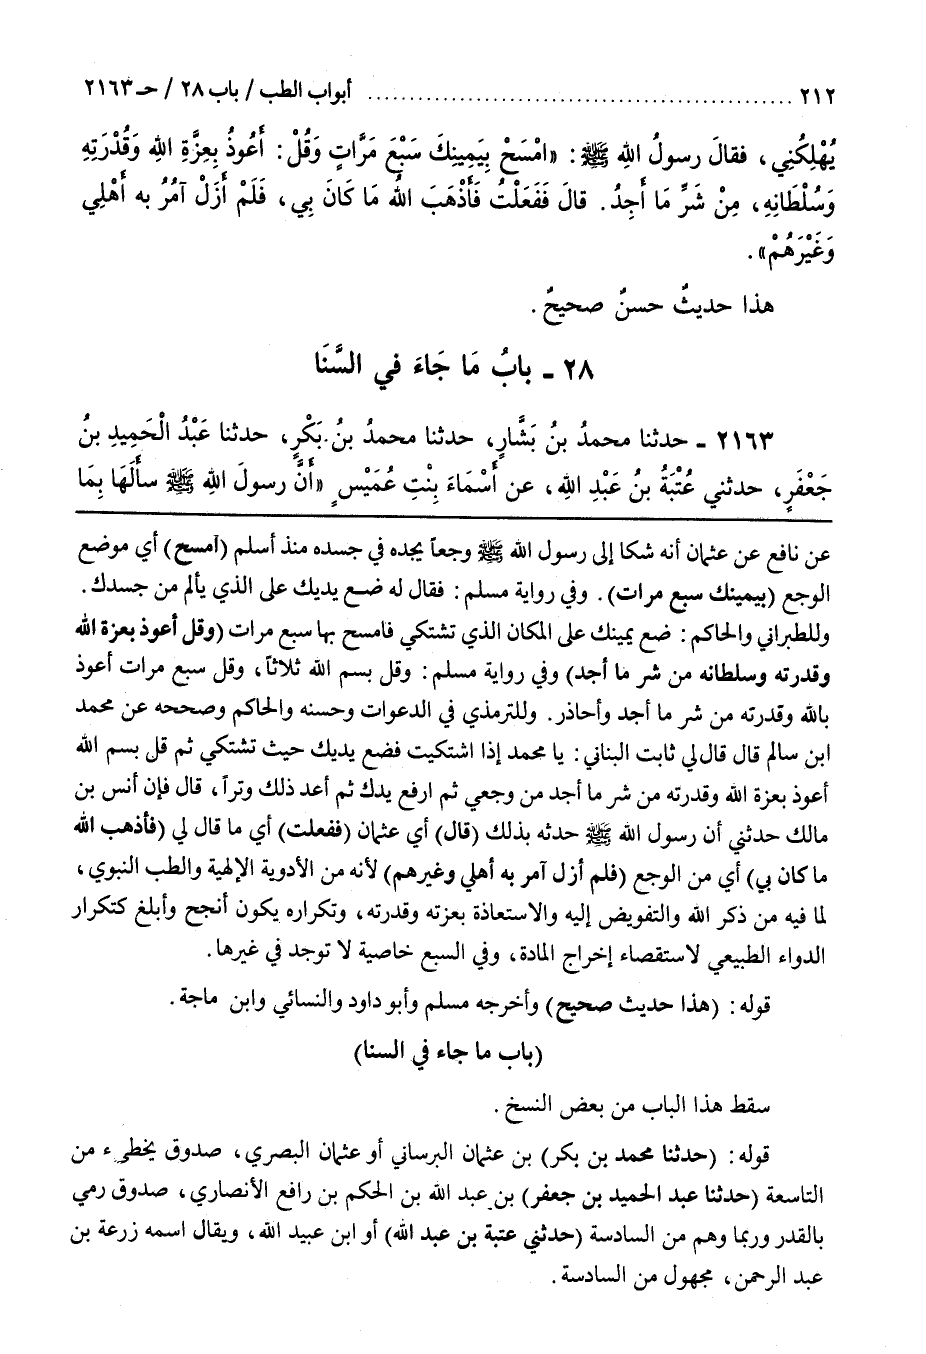 ٢١٢ ............................................................ أبواب الطب / باب ٢٨ / حـ ٢١٦٣
يُهْلِكُنِي، فقالَ رسولُ اللهِ ﷺ: «امْسَحْ بِيَمِينِكَ سَبْعَ مَرَّاتٍ وَقُلْ: أَعُوذُ بِعِزَّةِ اللهِ وَقُدْرَتِهِ
وَسُلْطَانِهِ، مِنْ شَرِّ مَا أَجِدُ. قالَ فَفَعَلْتُ فَأَذْهَبَ اللهُ مَا كَانَ بِي، فَلَمْ أَزَلْ آمُرُ به أَهْلِي
وَغَيْرَهُمْ».
هذا حديثٌ حسنٌ صحيحٌ.
٢٨ ـ بابُ مَا جَاءَ في السَّنَا
٢١٦٣ ـ حدثنا محمدُ بنُ بَشَّارٍ، حدثنا محمدُ بنُ بَكْرٍ، حدثنا عَبْدُ الْحَمِيدِ بنُ
جَعْفَرٍ، حدثني عُتْبَةُ بنُ عَبْدِ اللهِ، عن أَسْمَاءَ بِنْتِ عُمَيْسٍ «أَنَّ رسولَ اللهِ ﷺ سأَلَهَا بِمَا
عن نافع عن عثمان أنه شكا إلى رسول الله ﷺ وجعاً يجده في جسده منذ أسلم (امسح) أي موضع
الوجع (بيمينك سبع مرات). وفي رواية مسلم: فقال له ضع يديك على الذي يألم من جسدك.
وللطبراني والحاكم: ضع يمينك على المكان الذي تشتكي فامسح بها سبع مرات (وقل أعوذ بعزة الله
وقدرته وسلطانه من شر ما أجد) وفي رواية مسلم: وقل بسم الله ثلاثاً، وقل سبع مرات أعوذ
بالله وقدرته من شر ما أجد وأحاذر. وللترمذي في الدعوات وحسنه والحاكم وصححه عن محمد
ابن سالم قال قال لي ثابت البناني: يا محمد إذا اشتكيت فضع يديك حيث تشتكي ثم قل بسم الله
أعوذ بعزة الله وقدرته من شر ما أجد من وجعي ثم ارفع يدك ثم أعد ذلك وتراً، قال فإن أنس بن
مالك حدثني أن رسول الله ﷺ حدثه بذلك (قال) أي عثمان (ففعلت) أي ما قال لي (فأذهب الله
ما كان بي) أي من الوجع (فلم أزل آمر به أهلي وغيرهم) لأنه من الأدوية الإلهية والطب النبوي،
لما فيه من ذكر الله والتفويض إليه والاستعاذة بعزته وقدرته، وتكراره يكون أنجح وأبلغ كتكرار
الدواء الطبيعي لاستقصاء إخراج المادة، وفي السبع خاصية لا توجد في غيرها.
قوله: (هذا حديث صحيح) وأخرجه مسلم وأبو داود والنسائي وابن ماجة.
(باب ما جاء في السنا)
سقط هذا الباب من بعض النسخ.
قوله: (حدثنا محمد بن بكر) بن عثمان البرساني أو عثمان البصري، صدوق يخطىء من
التاسعة (حدثنا عبد الحميد بن جعفر) بن عبد الله بن الحكم بن رافع الأنصاري، صدوق رمي
بالقدر وربما وهم من السادسة (حدثني عتبة بن عبد الله) أو ابن عبيد الله، ويقال اسمه زرعة بن
عبد الرحمن، مجهول من السادسة.